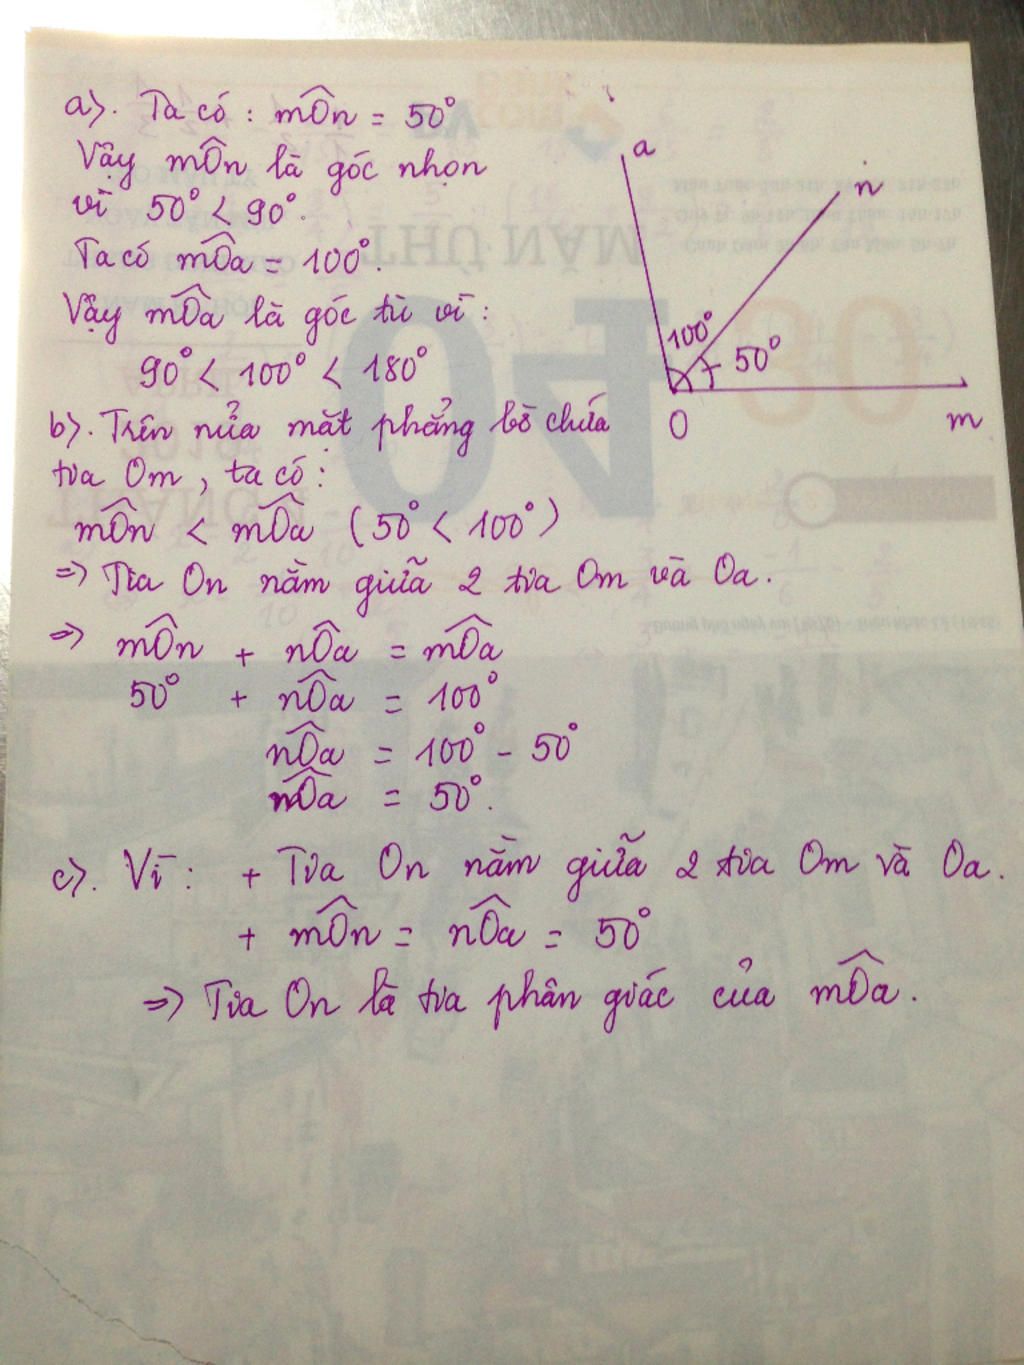 a). Ta có : mOn = 50°
Vậy mOn là góc nhọn
vì 50° < 90°.
Ta có mOa = 100°.
Vậy mOa là góc tù vì :
90° < 100° < 180°
b). Trên nửa mặt phẳng bờ chứa
tia Om, ta có :
mOn < mOa (50° < 100°)
=> Tia On nằm giữa 2 tia Om và Oa.
=> mOn + nOa = mOa
50° + nOa = 100°
nOa = 100° - 50°
nOa = 50°.
c). Vì : + Tia On nằm giữa 2 tia Om và Oa.
+ mOn = nOa = 50°
=> Tia On là tia phân giác của mOa.
a
n
100°
50°
O
m
THỨ NĂM
04
30